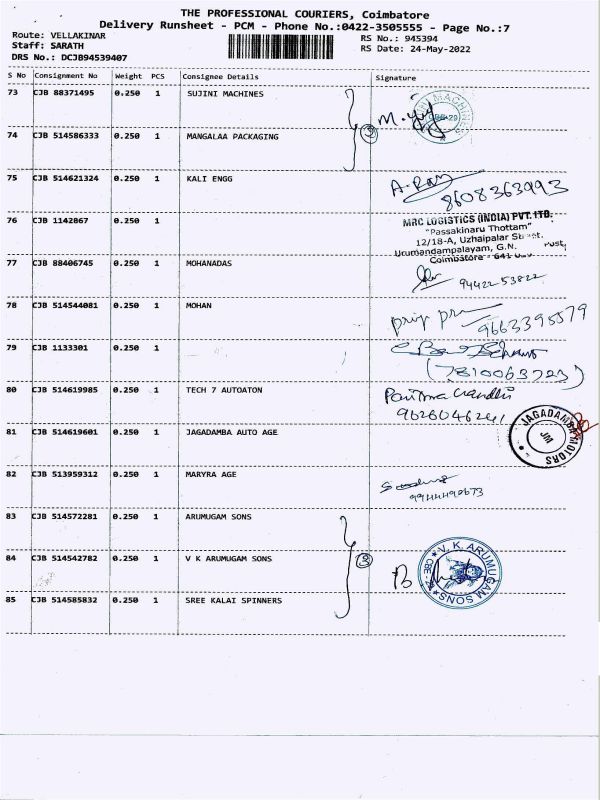 THE PROFESSIONAL COURIERS, Coimbatore
Delivery Runsheet - PCM - Phone No.:0422-3505555 - Page No.:7
Route: VELLAKINAR
Staff: SARATH
DRS No.: DCJB94539407
RS No.: 945394
RS Date: 24-May-2022
S No Consignment No Weight PCS Consignee Details Signature
73 CJB 88371495 0.250 1 SUJINI MACHINES
74 CJB 514586333 0.250 1 MANGALAA PACKAGING
75 CJB 514621324 0.250 1 KALI ENGG
8608363993
76 CJB 1142867 0.250 1
MRC LOGISTICS (INDIA) PVT. LTD.
"Passakinaru Thottam"
12/18-A, Uzhaipalar
Urumandampalayam, G.N.
Coimbatore - 641
77 CJB 88406745 0.250 1 MOHANADAS
94422 53822
78 CJB 514544081 0.250 1 MOHAN
9663395579
79 CJB 1133301 0.250 1
(7810063723)
80 CJB 514619985 0.250 1 TECH 7 AUTOATON
9626046241
81 CJB 514619601 0.250 1 JAGADAMBA AUTO AGE
JAGADAMBA MOTORS
JM
82 CJB 513959312 0.250 1 MARYRA AGE
9944490673
83 CJB 514572281 0.250 1 ARUMUGAM SONS
84 CJB 514542782 0.250 1 V K ARUMUGAM SONS
V. K. ARUMUGAM SONS
85 CJB 514585832 0.250 1 SREE KALAI SPINNERS